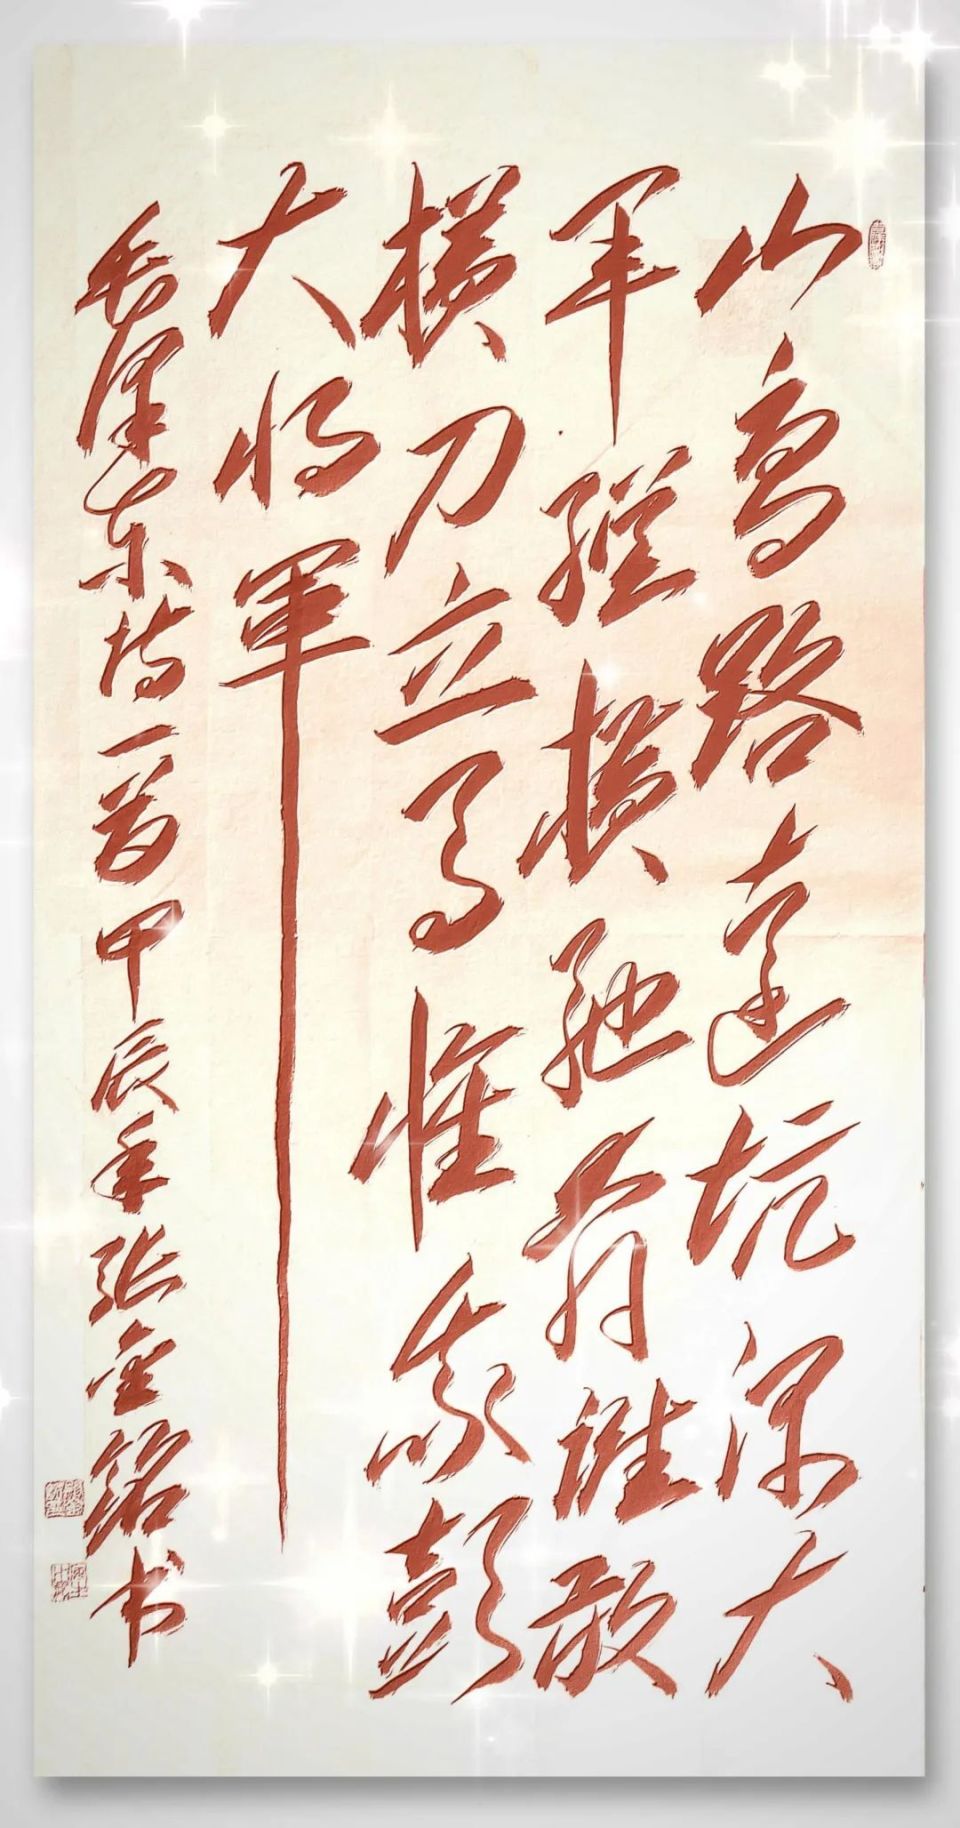 山高路远坑深大
军纵横驰奔谁敢
横刀立马惟我彭
大将軍
毛泽东诗一首甲辰年张金铭书